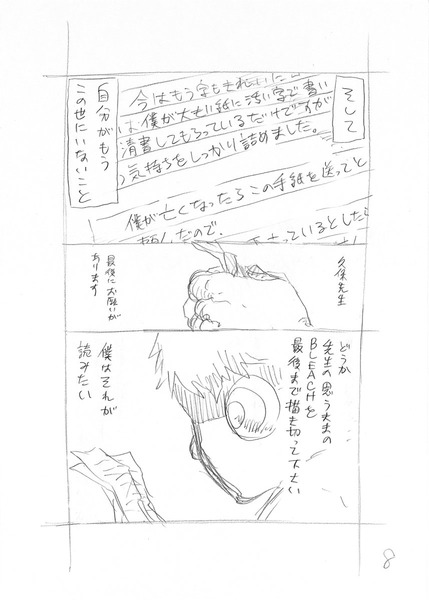 そして
今はもう字もきれいに
は僕が大せい紙に汚い字で書い
清書してもらっているだけですが
気持ちをしっかり詰めました。
僕が亡くなったらこの手紙を送ってと
頼んだので、
さっているとしたら
自分がもう
この世にいないこと
久保先生
最後にお願いが
あります
どうか
先生の思うままの
BLEACHを
最後まで描き切って下さい
僕はそれが
読みたい
8